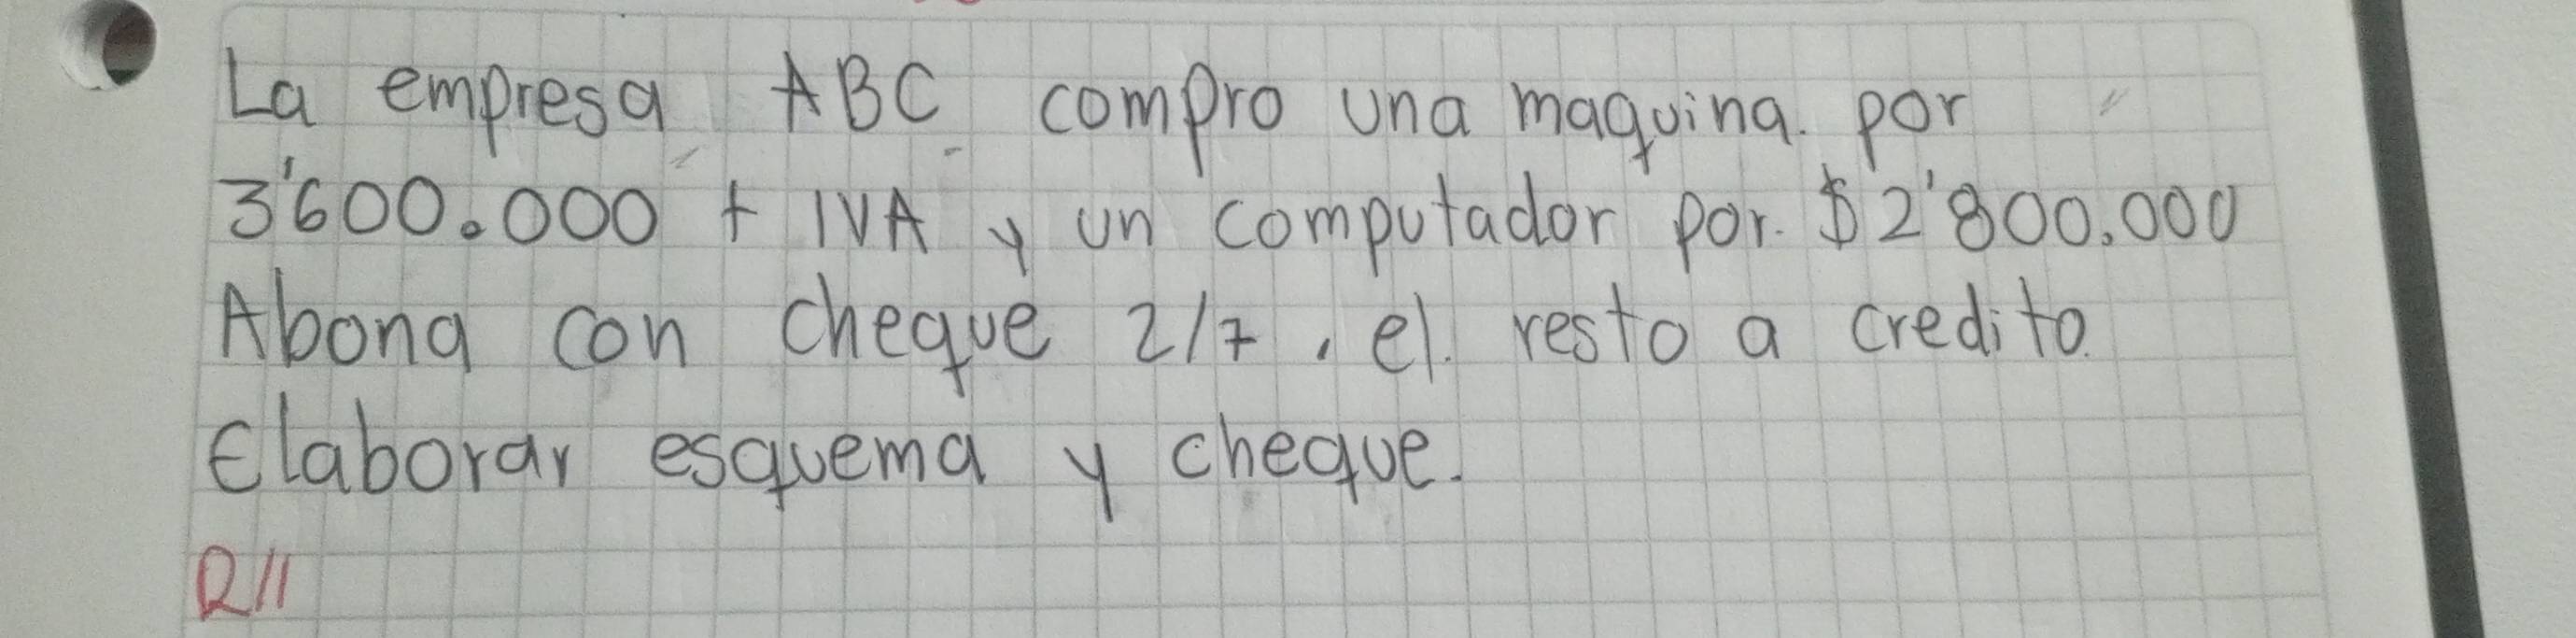 La empresa ABC compro una maquina. por
3'600.000 + IVA y un computador por. $2'800.000
Abona con cheque 2/7, el. resto a credito.
Elaborar esquema y cheque.
R//